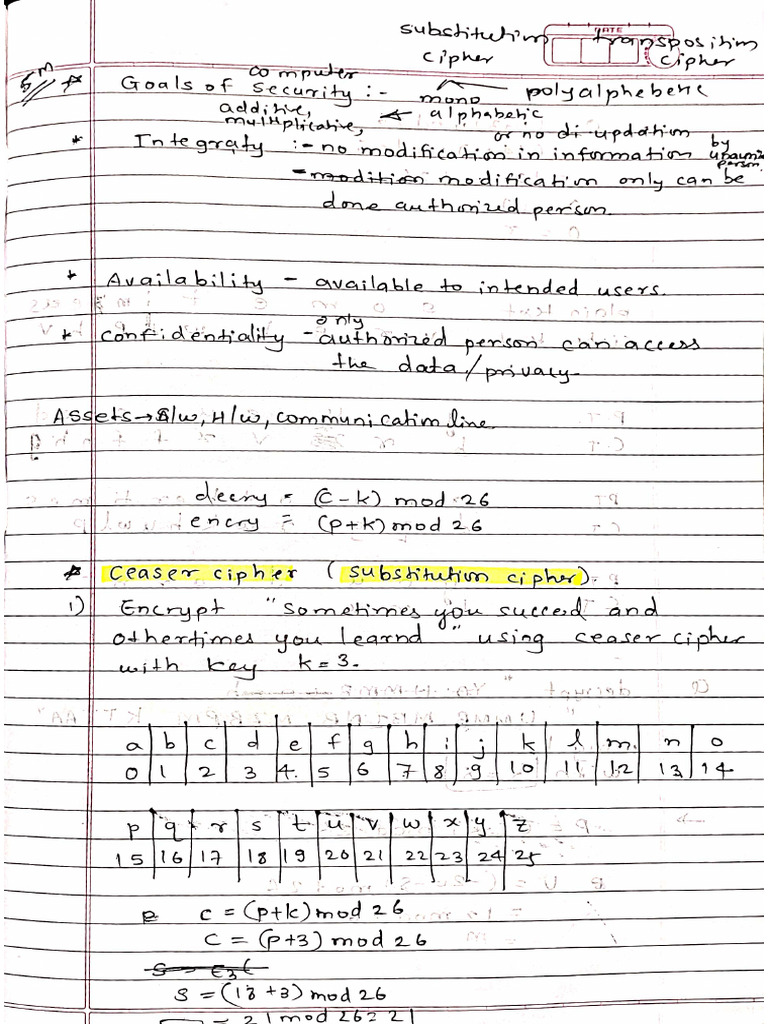 substitution transposition
cipher cipher
DATE
5M * Goals of computer security :- mono polyalphebetic
additive, ← alphabetic
multiplicative,
or no di updation
* Integraty :- no modification in information by
person
- modition modification only can be
done authorized person.
* Availability - available to intended users.
* Confidentiality - only authorized person can access
the data/privacy
Assets → S/w, H/w, communication line.
decry = (C-k) mod 26
encry = (P+k) mod 26
* Ceaser cipher (substitution cipher).
1) Encrypt "sometimes you succeed and
othertimes you learnd" using ceaser cipher
with key k=3.
a b c d e f g h i j k l m n o
0 1 2 3 4 5 6 7 8 9 10 11 12 13 14
p q r s t u v w x y z
15 16 17 18 19 20 21 22 23 24 25
c = (p+k) mod 26
c = (p+3) mod 26
s = (18+3) mod 26
= 21 mod 26 = 21